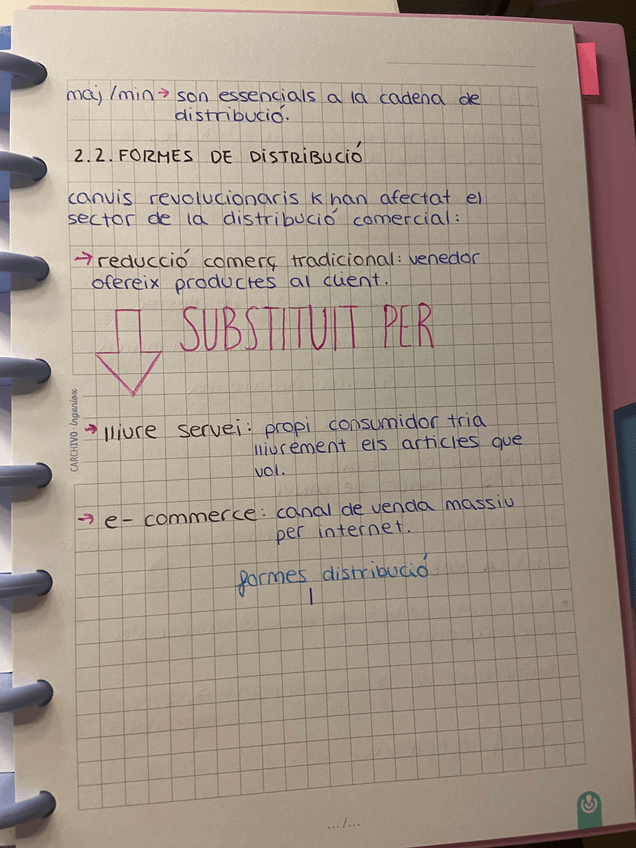 maj/min → son essencials a la cadena de
distribució.
2.2. FORMES DE DISTRIBUCIÓ
canvis revolucionaris k han afectat el
sector de la distribució comercial:
→ reducció comerç tradicional: venedor
ofereix productes al client.
SUBSTITUIT PER
CARCHIVO - Ingeniox
→ lliure servei: propi consumidor tria
lliurement els articles que
vol.
→ e-commerce: canal de venda massiu
per internet.
formes distribució
.../...